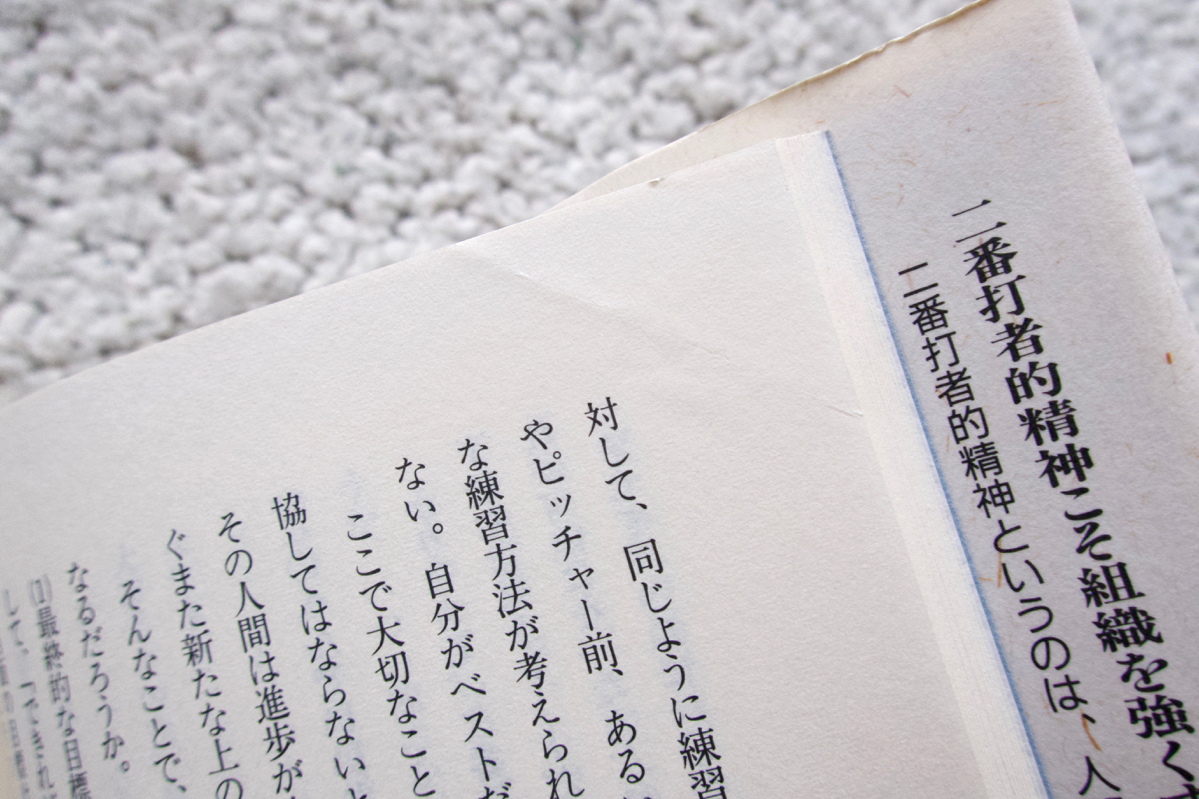 二番打者的精神こそ組織を強く
二番打者的精神というのは、人
対して、同じように練習
やピッチャー前、ある
な練習方法が考えられ
ない。自分がベストだ
ここで大切なこと
協してはならないと
その人間は進歩が
ぐまた新たな上の
そんなことで、
なるだろうか。
(1)最終的な目標
して、「できれば